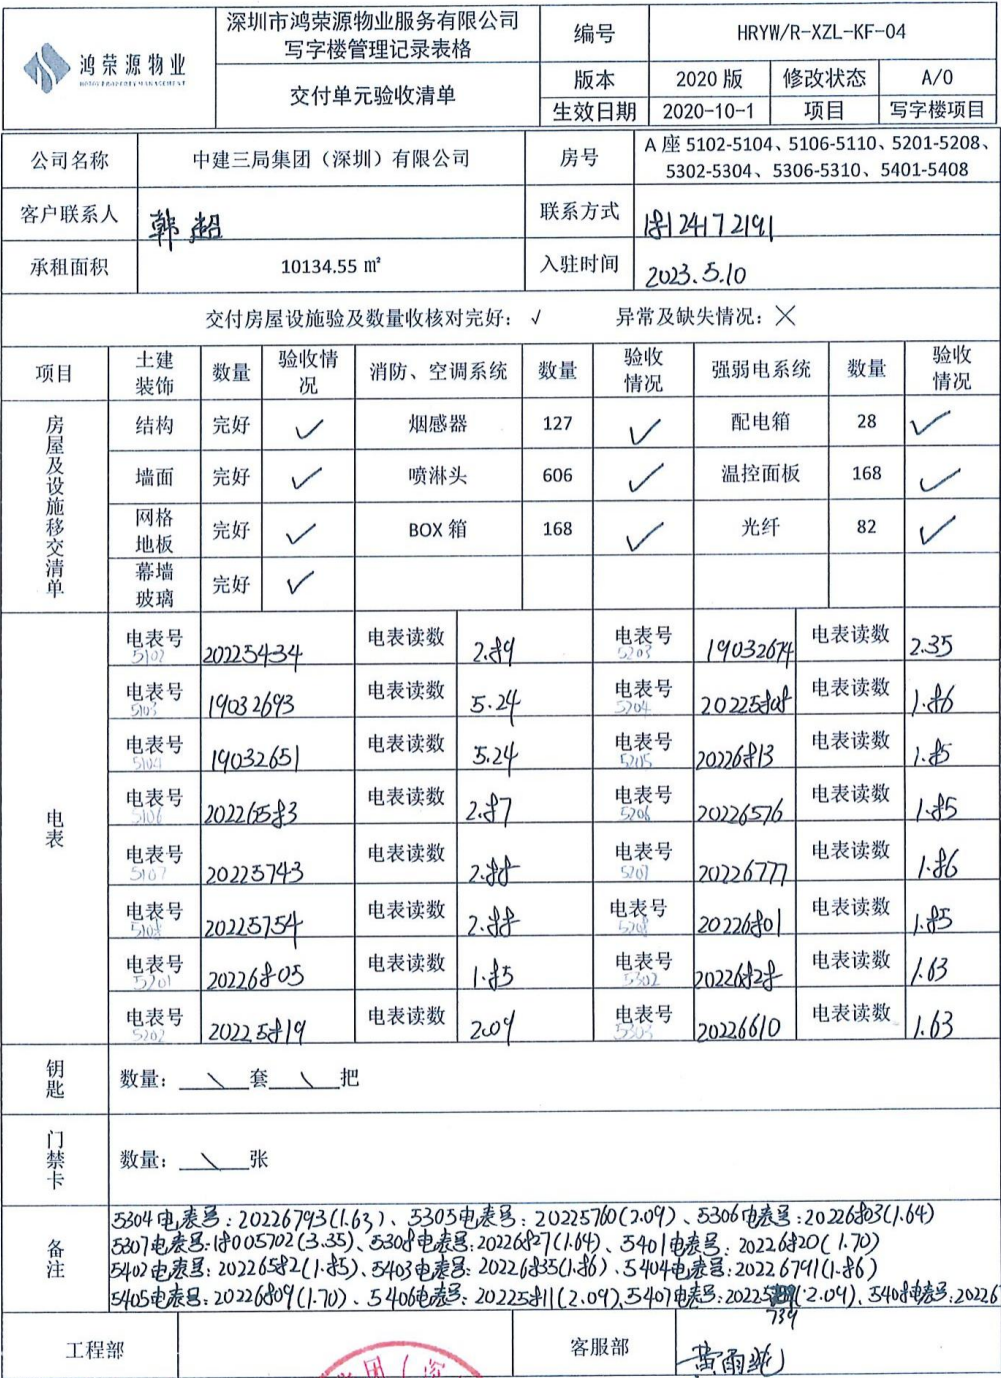 鸿荣源物业
深圳市鸿荣源物业服务有限公司
写字楼管理记录表格
交付单元验收清单
编号 HRYW/R-XZL-KF-04
版本 2020 版 修改状态 A/0
生效日期 2020-10-1 项目 写字楼项目
公司名称 中建三局集团（深圳）有限公司 房号 A 座 5102-5104、5106-5110、5201-5208、
5302-5304、5306-5310、5401-5408
客户联系人 韩超 联系方式 18124172191
承租面积 10134.55 ㎡ 入驻时间 2023.5.10
交付房屋设施验及数量收核对完好：√ 异常及缺失情况：×
项目 土建装饰 数量 验收情况 消防、空调系统 数量 验收情况 强弱电系统 数量 验收情况
房屋及设施移交清单
结构 完好 ✓ 烟感器 127 ✓ 配电箱 28 ✓
墙面 完好 ✓ 喷淋头 606 ✓ 温控面板 168 ✓
网格地板 完好 ✓ BOX 箱 168 ✓ 光纤 82 ✓
幕墙玻璃 完好 ✓
电表
电表号 5102 20225434 电表读数 2.89 电表号 5203 19032674 电表读数 2.35
电表号 5103 19032693 电表读数 5.24 电表号 5204 20225808 电表读数 1.86
电表号 5104 19032651 电表读数 5.24 电表号 5205 20226813 电表读数 1.85
电表号 5106 20226583 电表读数 2.87 电表号 5206 20226576 电表读数 1.85
电表号 5107 20225743 电表读数 2.88 电表号 5207 20226777 电表读数 1.86
电表号 5108 20225754 电表读数 2.88 电表号 5208 20226801 电表读数 1.85
电表号 5201 20226805 电表读数 1.85 电表号 5302 20226828 电表读数 1.63
电表号 5202 20225819 电表读数 2.09 电表号 5303 20226610 电表读数 1.63
钥匙 数量：＼套＼把
门禁卡 数量：＼张
备注
5304电表号：20226793(1.63)、5305电表号：20225760(2.09)、5306电表号：20226803(1.64)
5307电表号：18005702(3.35)、5308电表号：20226827(1.64)、5401电表号：20226820(1.70)
5402电表号：20226582(1.85)、5403电表号：20226835(1.86)、5404电表号：20226791(1.86)
5405电表号：20226809(1.70)、5406电表号：20225811(2.09)、5407电表号：20225(2.09)、5408电表号：20226
739
工程部 客服部